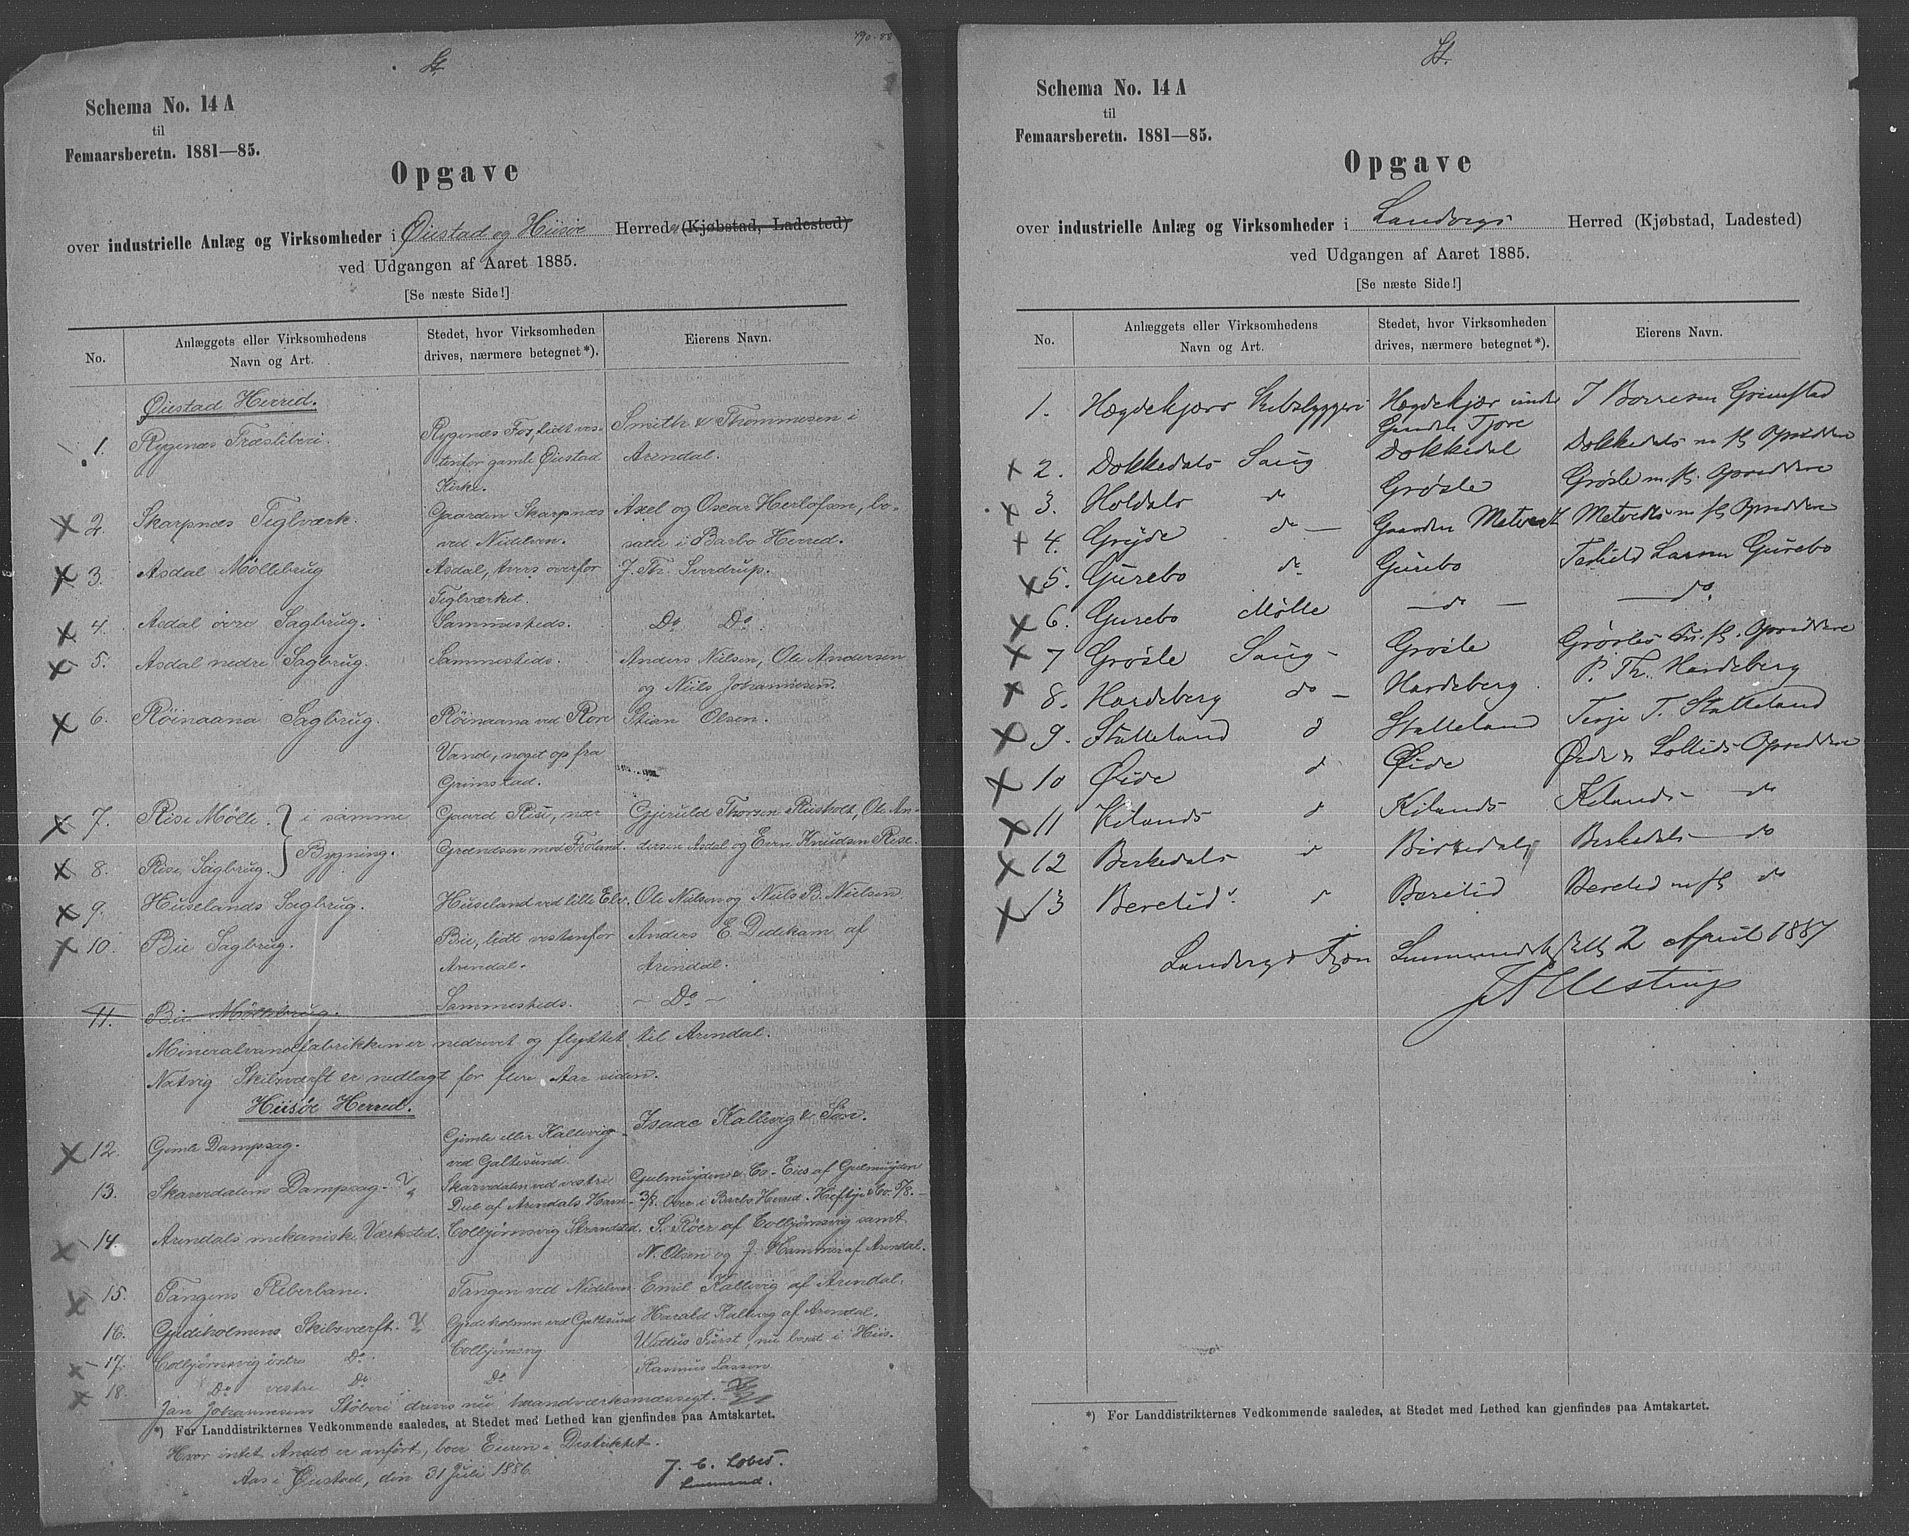 190-88
Schema No. 14 A
til
Femaarsberetn. 1881—85.
Opgave
over industrielle Anlæg og Virksomheder i Øiestad og Hisøe Herred (Kjøbstad, Ladested)
ved Udgangen af Aaret 1885.
[Se næste Side!]
No.
Anlæggets eller Virksomhedens
Navn og Art.
Stedet, hvor Virksomheden
drives, nærmere betegnet*).
Eierens Navn.
Øiestad Herred.
1. Rygenæs Træsliberi. Rygenæs Fos, lidt ves- Smith & Thommesen i
tenfor gamle Øiestad Arendal.
Kirke.
2. Skarpnæs Teglværk. Gaarden Skarpnæs Axel og Oscar Herlofsen, bo-
ved Nidelven. satte i Barbo Herred.
3. Asdal Møllebrug Asdal, tvers overfor J. Th. Sverdrup.
Teglværket.
4. Asdal øvre Sagbrug. Sammesteds. Do Do
5. Asdal nedre Sagbrug. Sammesteds. Anders Nielsen, Ole Andersen
og Niels Johannesen.
6. Røinaana Sagbrug. Røinaana ved Rore Stian Olsen.
Vand, noget op fra
Grimstad.
7. Rise Mølle. } i samme Gaard Rise, nær Gjeruld Thorsen Risholt, Ole An-
8. Rise Sagbrug. } Bygning. Grændsen mod Frøland. dersen Asdal og Even Knudsen Rise.
9. Huselands Sagbrug. Huseland ved lille Elv. Ole Nielsen og Niels B. Nielsen
10. Bie Sagbrug. Bie, lidt vestenfor Anders E. Dedekam af
Arendal. Arendal.
11. Bie Møllebrug. Sammesteds. - Do -
Mineralvandfabrikken er nedrevet og flyttet til Arendal.
Natvig Skibsværft er nedlagt for flere Aar siden.
Hisøe Herred.
12. Gimle Dampsag. Gimle eller Kallevig Isaac Kallevig & Søn.
ved Galtesund.
13. Skarvedalens Dampsag. Skarvedalen ved vestre Gulmuyden & Co - Eies af Gulmuyden
Del af Arendals Havn 3/8. boer i Barbo Herred. Heftye & Co. 5/8.
14. Arendals mekaniske Værksted. Colbjørnsvig Strandsted. S. Røer af Colbjørnsvig samt
N. Olsen og J. Hammer af Arendal.
15. Tangens Reberbane. Tangen ved Nidelven Emil Kallevig af Arendal.
16. Gjedeholmens Skibsværft. Gjedeholmen ved Galtesund Harald Kallevig af Arendal.
17. Colbjørnsvig østre Do. Colbjørnsvig Wettus Fürst, nu bosat i Hiis.
18. Do vestre Do Do Rasmus Lassen
Jan Johannesens Støberi drives nu haandværksmæssigt.
*) For Landdistrikterne Vedkommende saaledes, at Stedet med Lethed kan gjenfindes paa Amtskartet.
Hvor intet Andet er anført, boer Eieren i Distriktet.
Aas i Øiestad, den 31 Juli 1886.
Lensmand.
Schema No. 14 A
til
Femaarsberetn. 1881—85.
Opgave
over industrielle Anlæg og Virksomheder i Landvigs Herred (Kjøbstad, Ladested)
ved Udgangen af Aaret 1885.
[Se næste Side!]
No.
Anlæggets eller Virksomhedens
Navn og Art.
Stedet, hvor Virksomheden
drives, nærmere betegnet*).
Eierens Navn.
1. Hægdekjærs Skibsbyggeri Hægdekjær under J Børresen Grimstad
Gaarden Tjore
2. Dokkedals Saug Dokkedal Dokkedals m fl Opsiddere
3. Holdals do Grøsle Grøsle m. fl. Opsiddere
4. Grøde do — Gaarden Metvedt Metvedts m fl Opsiddere
5. Gurebo do Gurebo Terkild Larsen Gurebo
6. Gurebo Mølle — do — — do
7 Grøsle Saug - Grøsle Grøsles m. fl. Opsiddere
8. Hardeberg do — Hardeberg P. Th. Hardeberg
9. Stalleland d Stalleland Terje T. Stalleland
10 Øide d Øide Øide Opsiddere
11 Kilands d Kilands Kilands — do
12 Berkedals d Birkedals Berkedals — do
13 Beretid d Beretid Beretid m fl do
2 April 1887
*) For Landdistrikternes Vedkommende saaledes, at Stedet med Lethed kan gjenfindes paa Amtskartet.